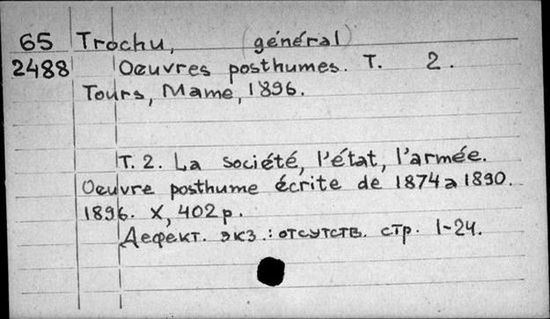 65 Trochu, (général)
2488 Oeuvres posthumes. T. 2.
Tours, Mame, 1896.
T. 2. La société, l'état, l'armée.
Oeuvre posthume écrite de 1874 a 1890.
1896. X, 402 p.
Дефект. экз.: отсутств. стр. 1-24.